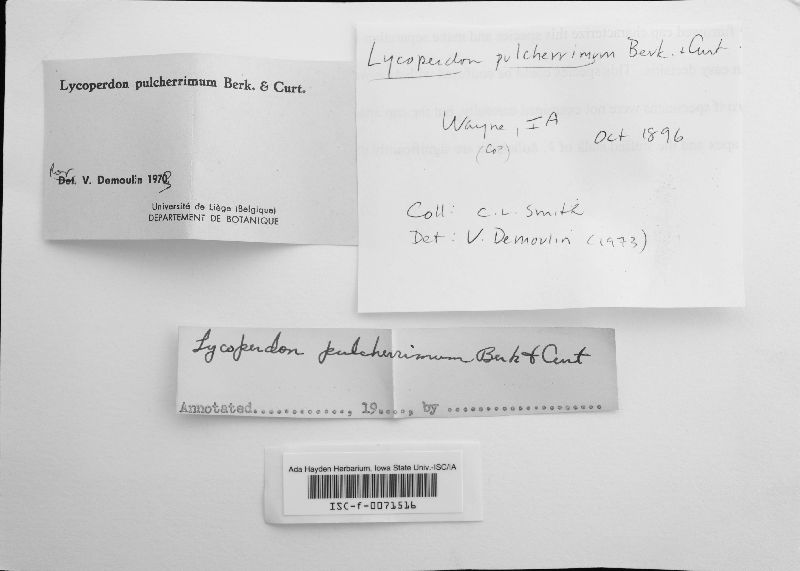 Lycoperdon pulcherrimum Berk. & Curt.
Rev. V. Demoulin 1973
Université de Liège (Belgique)
DEPARTEMENT DE BOTANIQUE
Lycoperdon pulcherrimum Berk. & Curt.
Wayne, IA
(Co?)
Oct 1896
Coll: C.L. Smith
Det: V. Demoulin (1973)
Lycoperdon pulcherrimum Berk & Curt
Annotated............, 19...., by ....................
Ada Hayden Herbarium, Iowa State Univ.-ISC/IA
ISC-f-0071516